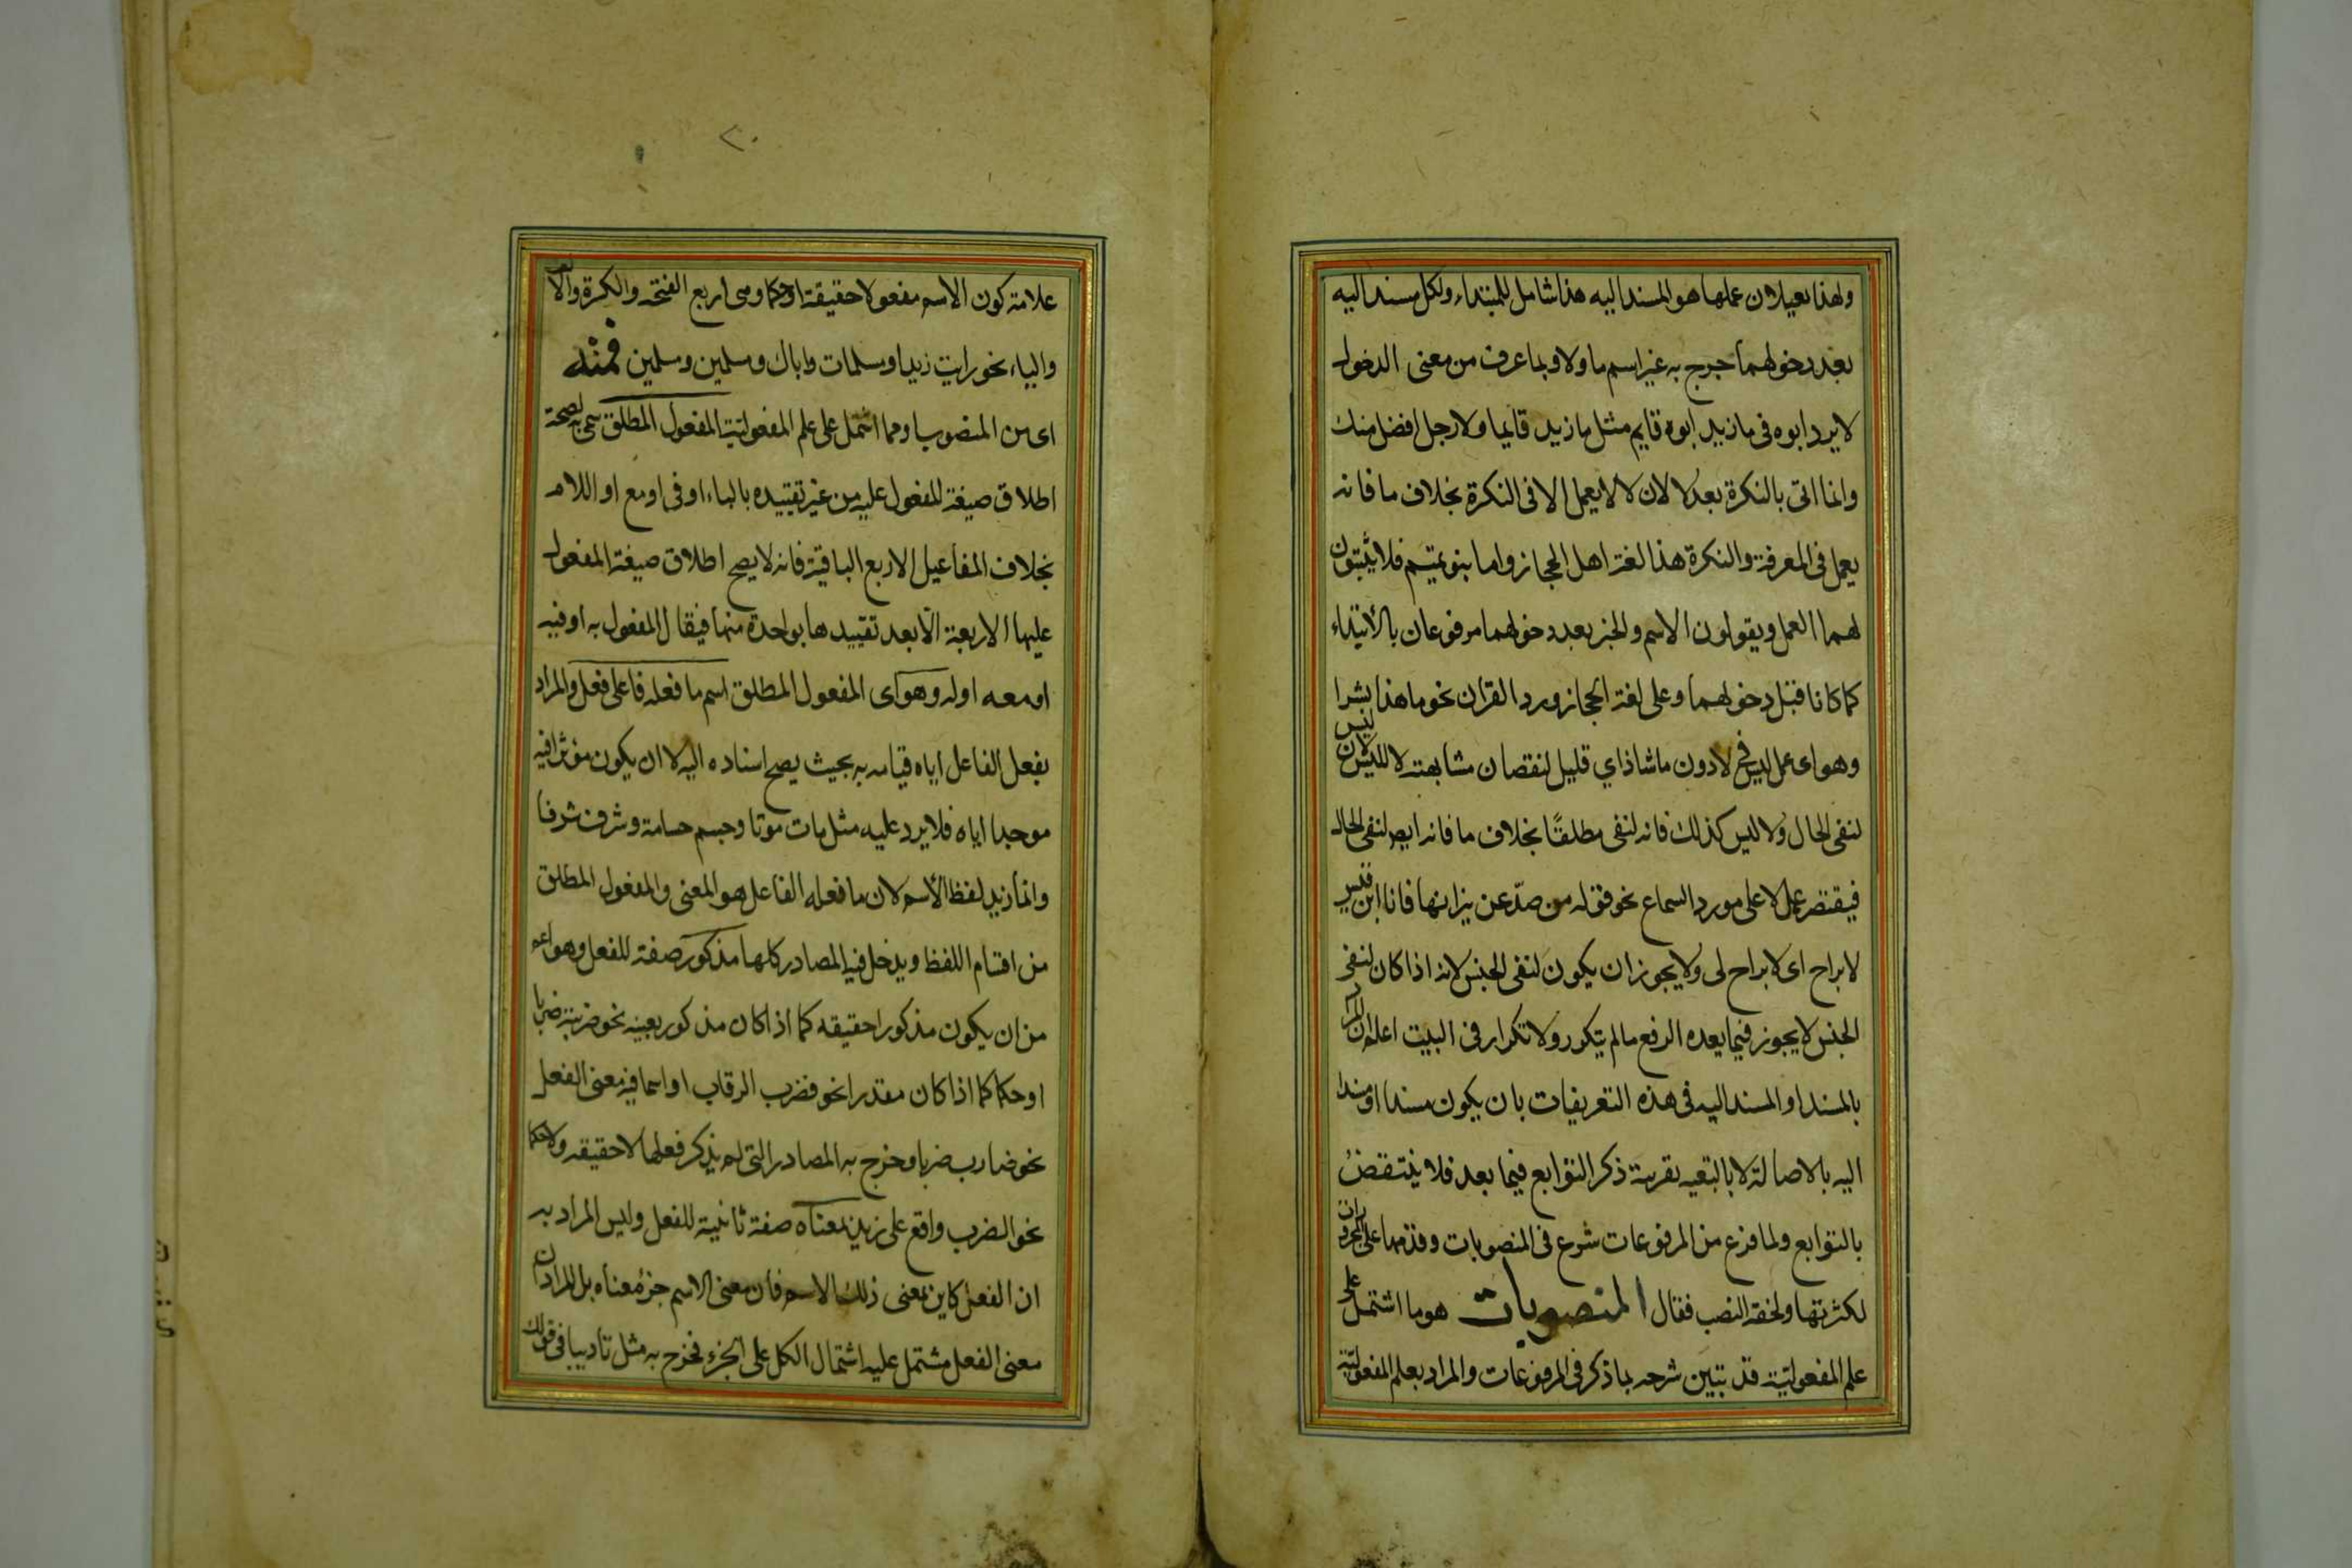 ولهذا يعملان عملها هو المسند اليه هذا شامل للمبتداء ولكل مسند اليه
بعد دخولهما خرج به غير اسم ما ولا وبما عرف من معنى الدخول
لا يرد ابوه فى ما زيد ابوه قايم مثل ما زيد قايما ولا رجل افضل منك
وانما اتى بالنكرة بعد لا لان لا لا يعمل الا فى النكرة بخلاف ما فانه
يعمل فى المعرفة والنكرة هذا لغة اهل الحجاز واما بنو تميم فلا يثبتون
لهما العمل ويقولون الاسم والخبر بعد دخولهما مرفوعان بالابتداء
كما كانا قبل دخولهما وعلى لغة الحجاز ورد القران نحو ما هذا بشرا
وهو اى عمل ليس فى لا دون ما شاذ اي قليل لنقصان مشابهة لا لليس لان ليس
لنفى الحال ولا ليس كذلك فانه لنفى مطلقًا بخلاف ما فانه ايضا لنفى الحال
فيقتصر عمل لا على مورد السماع نحو قوله من صدّ عن نيرانها فانا ابن قيس
لا براح اى لا براح لى ولا يجوز ان يكون لنفى الجنس لانه اذا كان لنفى
الجنس لا يجوز فيما بعده الرفع ما لم يتكرر ولا تكرار فى البيت اعلم ان المراد
بالمسند او المسند اليه فى هذه التعريفات بان يكون مسندا او مسندا
اليه بالاصالة لا بالتبعيه بقرينة ذكر التوابع فيما بعد فلا ينتقض
بالتوابع ولما فرغ من المرفوعات شرع فى المنصوبات وقدمها على المجرورات
لكثرتها ولخفة النصب فقال المنصوبات هو ما اشتمل على
علم المفعوليّة قد تبين شرحه بما ذكر فى المرفوعات والمراد بعلم المفعوليّة
٢٠
علامة كون الاسم مفعولا حقيقة او حكما وهى اربع الفتحة والكسرة والالف
والياء نحو رايت زيدا ومسلمات واباك ومسلمين ومسلمين فمنْه
اى من المنصوب او مما اشتمل على علم المفعوليّة المفعول المطلق سمى به لصحة
اطلاق صيغة المفعول عليه من غير تقييده بالباء او فى او مع او اللام
بخلاف المفاعيل الاربع الباقية فانه لا يصح اطلاق صيغة المفعول
عليها الاربعة الّا بعد تقييدها بواحدة منها فيقال المفعول به او فيه
او معه او له وهو اى المفعول المطلق اسم ما فعله فاعل فعل والمراد
بفعل الفاعل اياه قيامه به بحيث يصح اسناده اليه لا ان يكون مؤثرا فيه
موجدا اياه فلا يرد عليه مثل مات موتا وجسم جسامة وشرف شرفا
وانما زيد لفظ الاسم لان ما فعله الفاعل هو المعنى والمفعول المطلق
من اقسام اللفظ ويدخل فيه المصادر كلها مذكور صفة للفعل وهو اعم
من ان يكون مذكورا حقيقه كما اذا كان مذكور بعينه نحو ضربته ضربا
او حكما كما اذا كان مقدرا نحو فضرب الرقاب او اسما فيه معنى الفعل
نحو ضارب ضربا وخرج به المصادر التى لم يذكر فعلها لا حقيقه ولا حكما
نحو الضرب واقع على زيد بمعناه صفة ثانية للفعل وليس المراد به
ان الفعل كاين بمعنى ذلك الاسم فان معنى الاسم جزء معناه بل المراد ان
معنى الفعل مشتمل عليه اشتمال الكل على الجزء فخرج به مثل تأديبا فى قولك